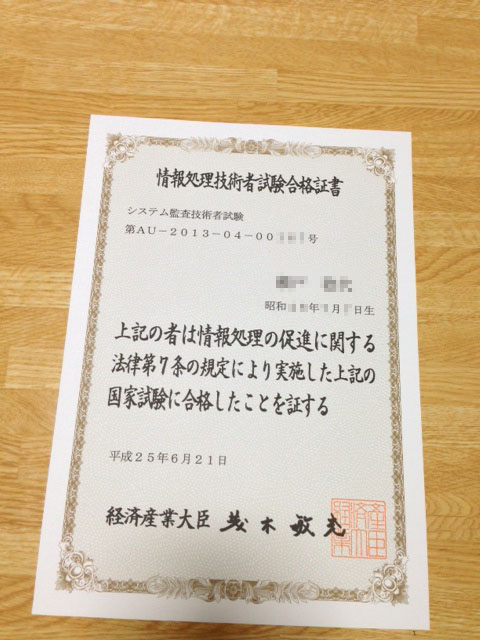 情報処理技術者試験合格証書
システム監査技術者試験
第AU－2013－04－00 号
昭和 年 月 日生
上記の者は情報処理の促進に関する
法律第7条の規定により実施した上記の
国家試験に合格したことを証する
平成25年6月21日
経済産業大臣 茂木敏充